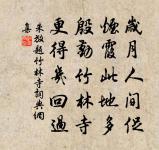 歲月人間促
煙霞此地多
殷勤竹林寺
更得幾回過
朱放題竹林寺詞典網
集